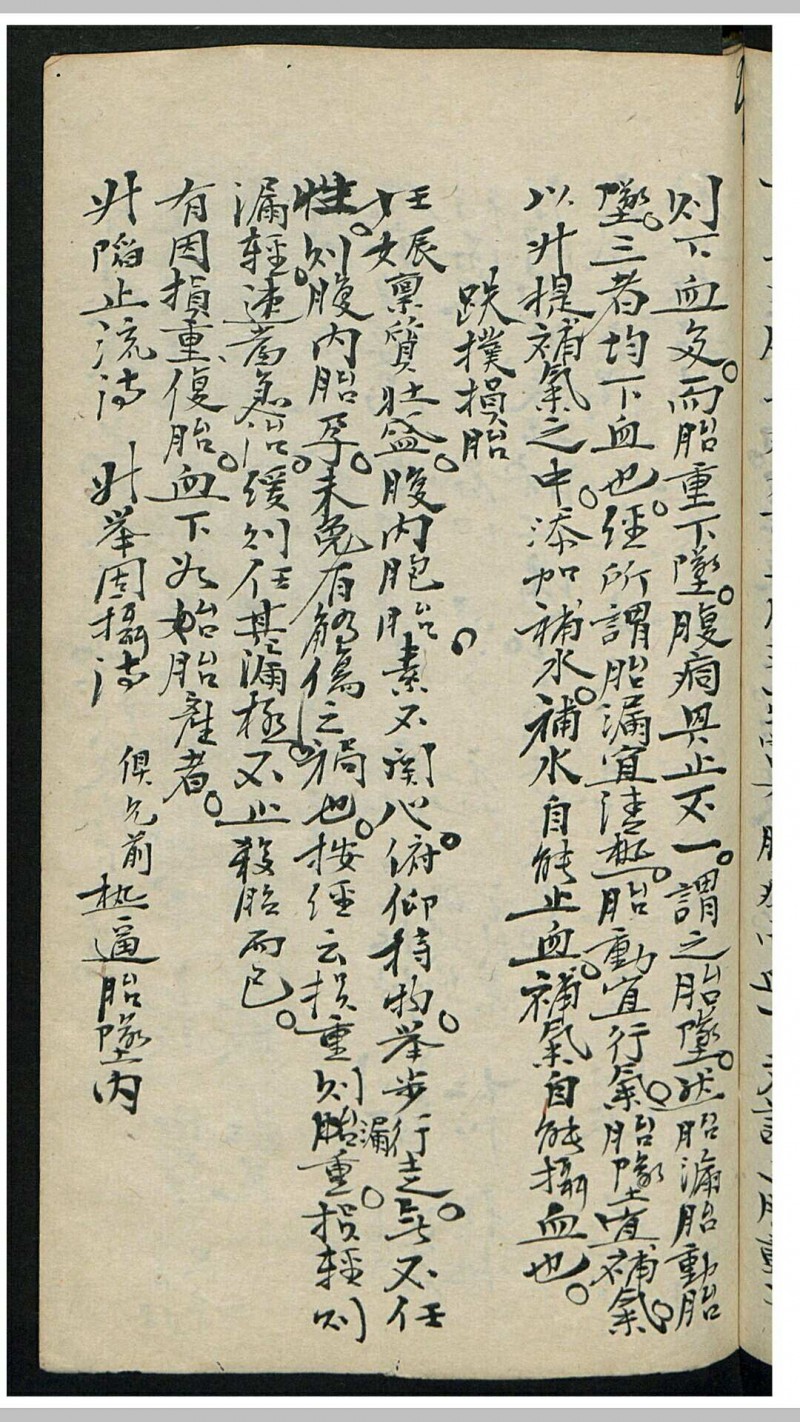 則下血多。而胎重下墜。腹痛與止不一。謂之胎墜。然胎漏胎動胎
墜。三者均下血也。經所謂胎漏宜清熱。胎動宜行氣。胎墜宜補氣。
以升提補氣之中。添加補水。補水自能止血。補氣自能攝血也。
跌撲損胎
妊娠稟質壯盛。腹內胞胎。素不関心。俯仰持物。举步行走。無不任
性。則腹內胎孕。未免有觸傷之禍也。按經云損重則胎漏重。損輕則
漏輕。速當急治。緩則任其漏極。不止殺胎而已。
有因損重傷胎。血下如始胎產者。
升陷止流湯 升举固攝湯 俱見前熱逼胎墜內